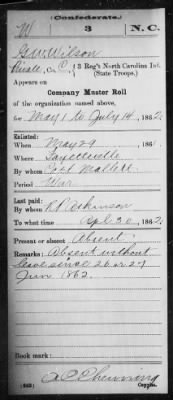 (Confederate.)
W 3 N.C.
G W Wilson
Private, Co. C, 3 Reg't North Carolina Inf.
(State Troops.)
Appears on
Company Muster Roll
of the organization named above,
for May 1 to July 14, 1862.
Enlisted:
When May 29, 1861.
Where Fayetteville
By whom Col Mallett
Period War
Last paid:
By whom R P Atkinson
To what time Apl 30, 1862.
Present or absent Absent
Remarks: Absent without
leave since 26 or 27
Jun 1862.
Book mark:
Copyist.